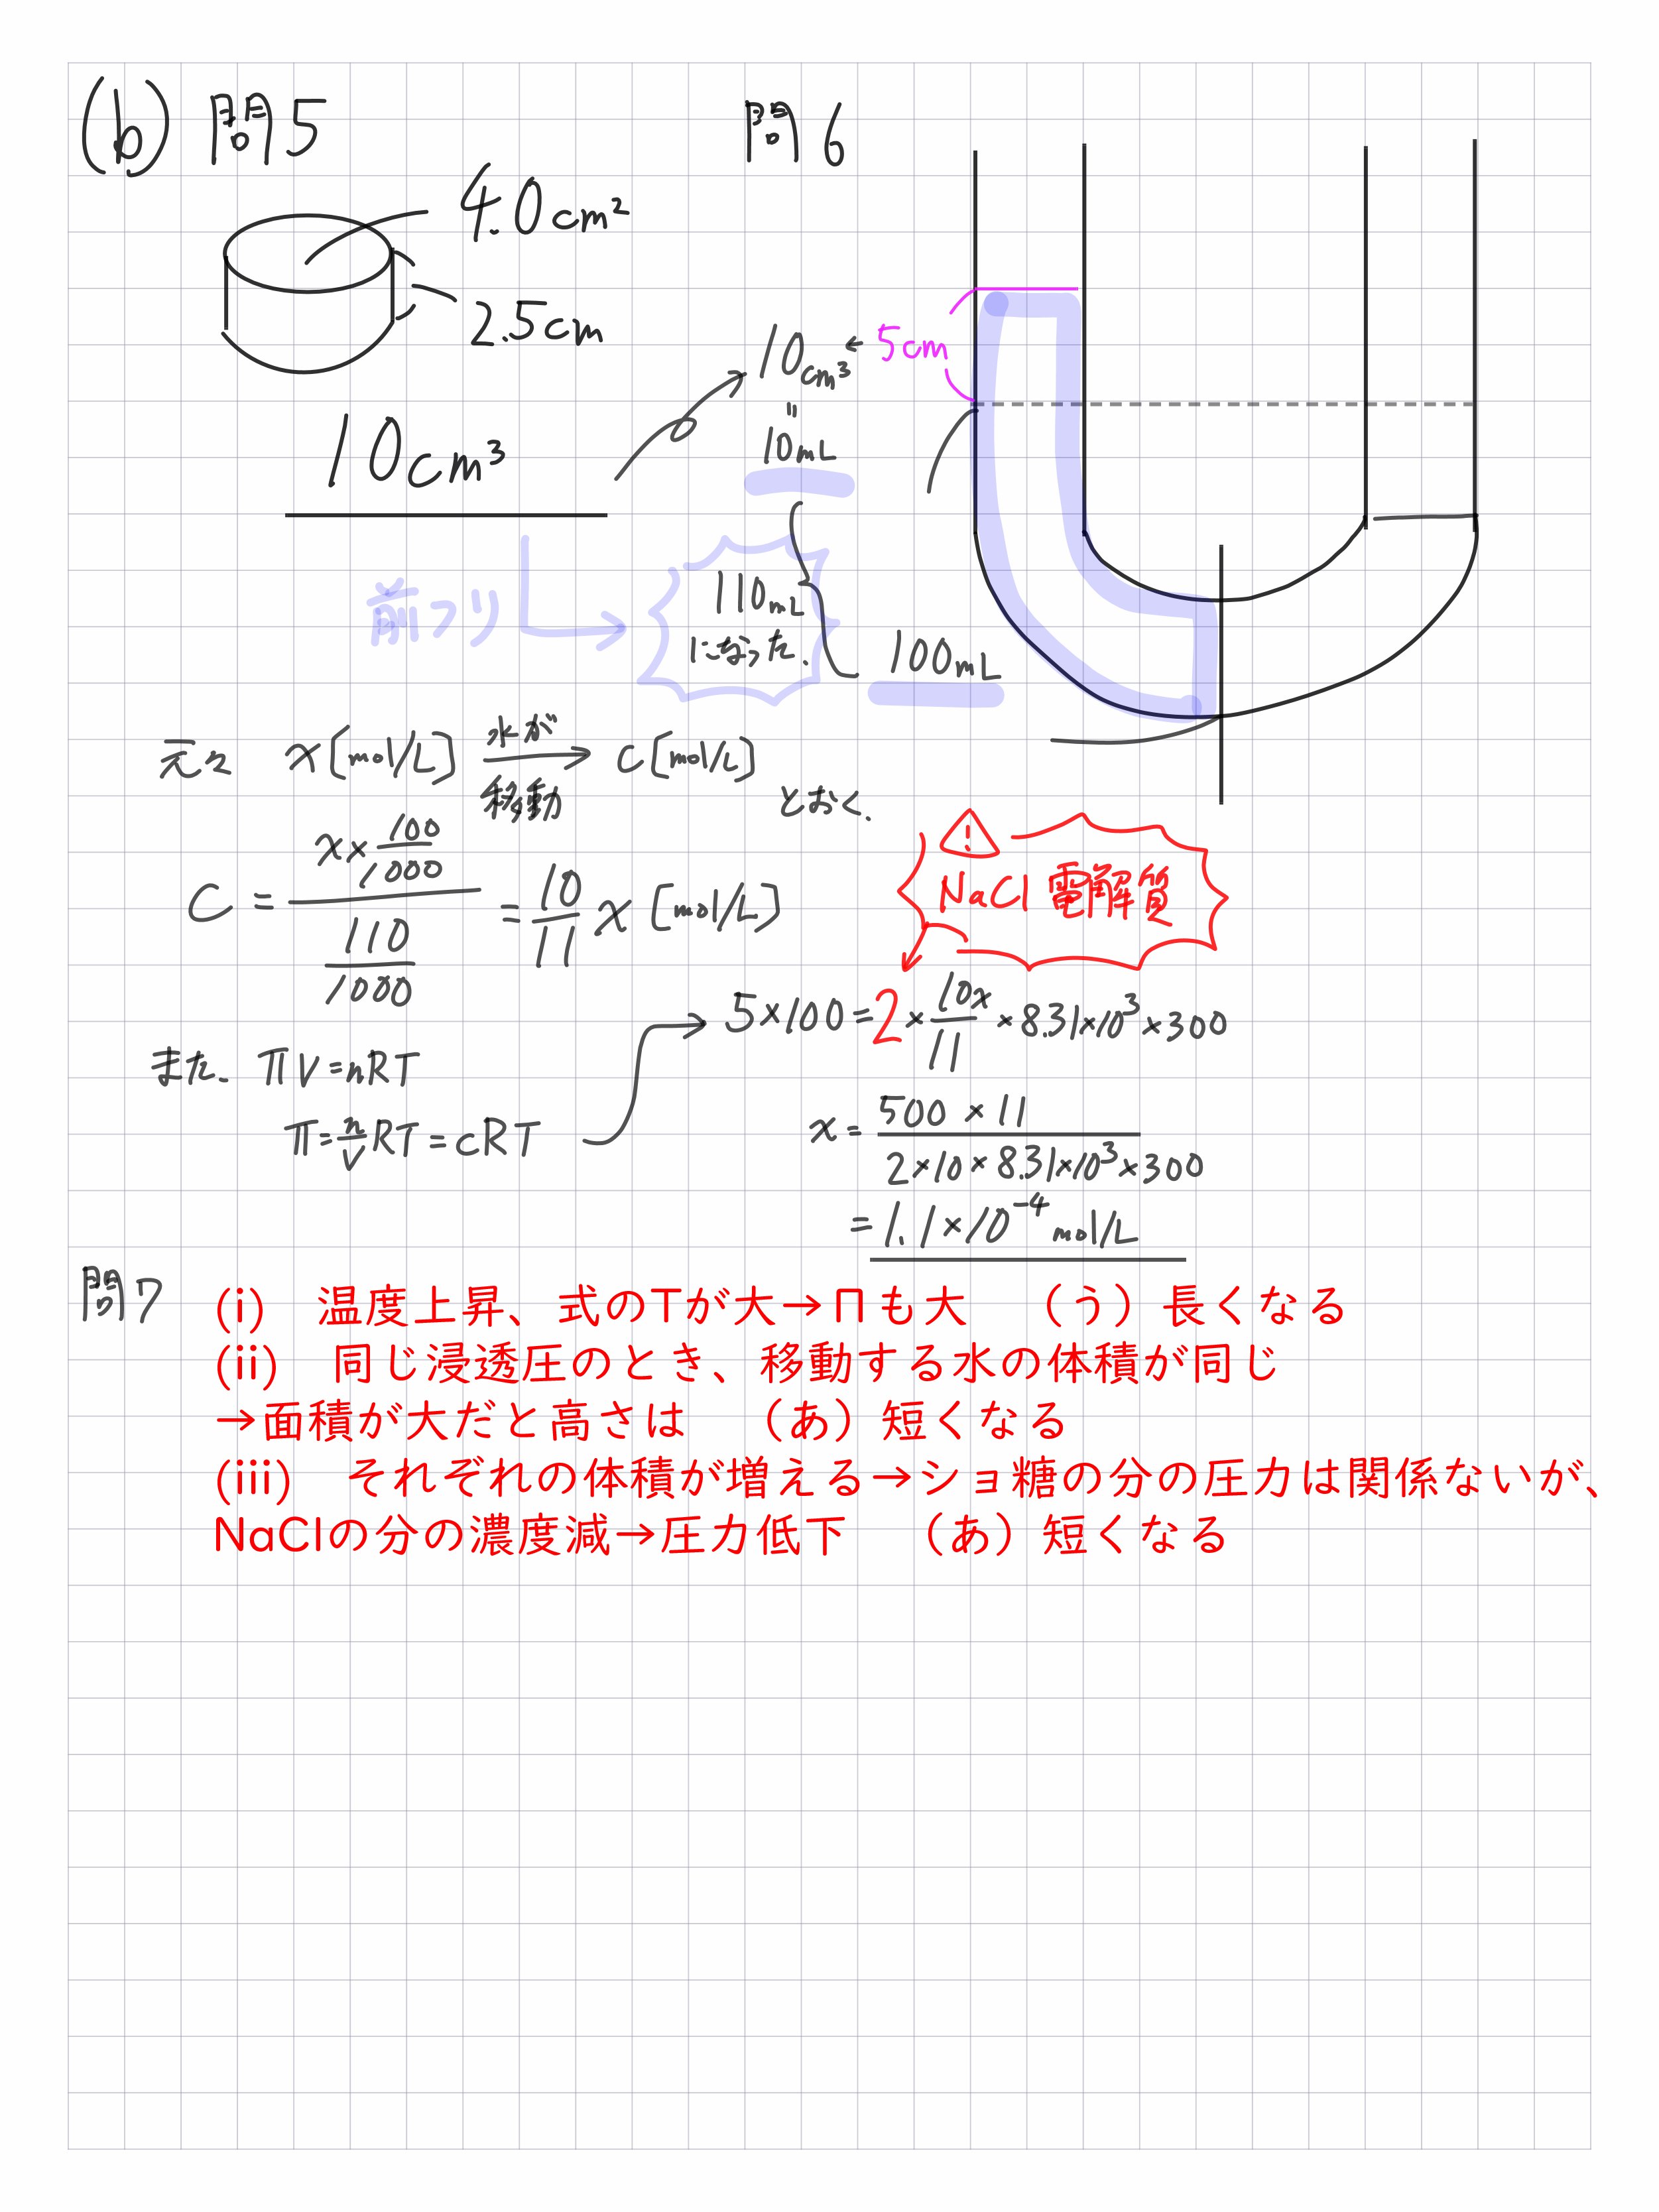 (b) 問5
4.0cm²
2.5cm
10cm³
前フリ
問6
5cm
10cm³
=
10mL
110mL
になった.
100mL
元々 x[mol/L] 水が移動→ c[mol/L]
とおく.
C = (x×100/1000)/(110/1000) = 10/11 x [mol/L]
また. πV=nRT
π=n/V RT=cRT
! NaCl 電解質
5×100=2×10x/11×8.31×10³×300
x= 500×11/2×10×8.31×10³×300
=1.1×10⁻⁴mol/L
問7
(i) 温度上昇、式のTが大→Πも大 (う)長くなる
(ii) 同じ浸透圧のとき、移動する水の体積が同じ
→面積が大だと高さは (あ)短くなる
(iii) それぞれの体積が増える→ショ糖の分の圧力は関係ないが、
NaClの分の濃度減→圧力低下 (あ)短くなる